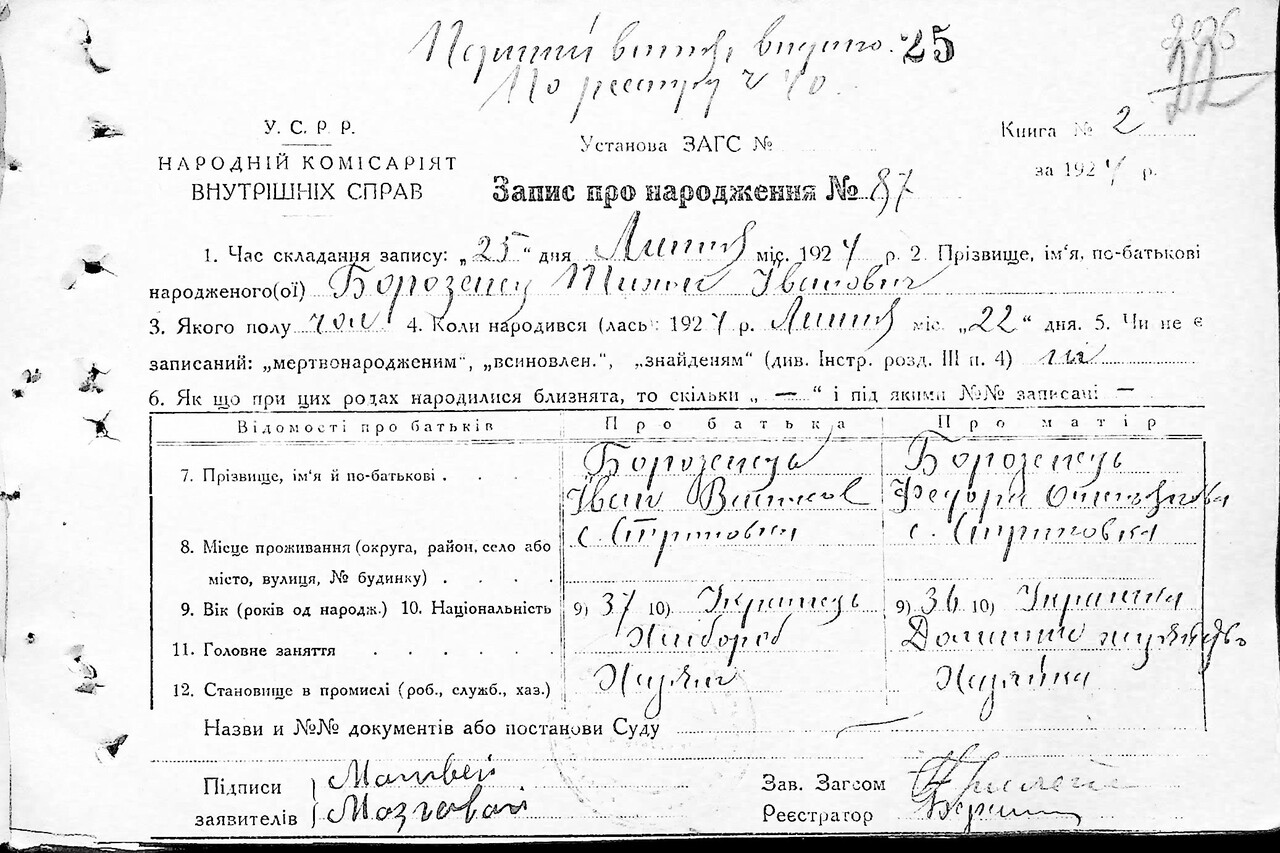 Перший витяг видано 25
По реестру ч 40
У. С. Р. Р.
НАРОДНІЙ КОМІСАРІЯТ
ВНУТРІШНІХ СПРАВ
Установа ЗАГС №
Книга № 2
за 1924 р.
Запис про народження № 87
1. Час складання запису: „25“ дня Липня міс. 1924 р. 2. Прізвище, ім'я, по-батькові
народженого(ої) Борозенец Іванович
3. Якого полу чол 4. Коли народився (лась) 1924 р. Липня міс. „22“ дня. 5. Чи не є
записаний: „мертвонародженим“, „всиновлен.“, „знайденям“ (див. Інстр. розд. III п. 4) ні
6. Як що при цих родах народилися близнята, то скільки „ — “ і під якими №№ записачі —
Відомості про батьків Про батька Про матір
7. Прізвище, ім'я й по-батькові . Борозенець Борозенець
Іван Федора
8. Місце проживання (округа, район, село або с. с.
місто, вулиця, № будинку) . . . .
9. Вік (років од народж.) 10. Національність 9) 37 10) Українець 9) 36 10) Українка
11. Головне заняття . . . . . . Хлібороб Домашнє
12. Становище в промислі (роб., служб., хаз.) Хазяін Хазяйка
Назви и №№ документів або постанови Суду
Підписи Матвей
заявителів Мазговай
Зав. Загсом
Реєстратор